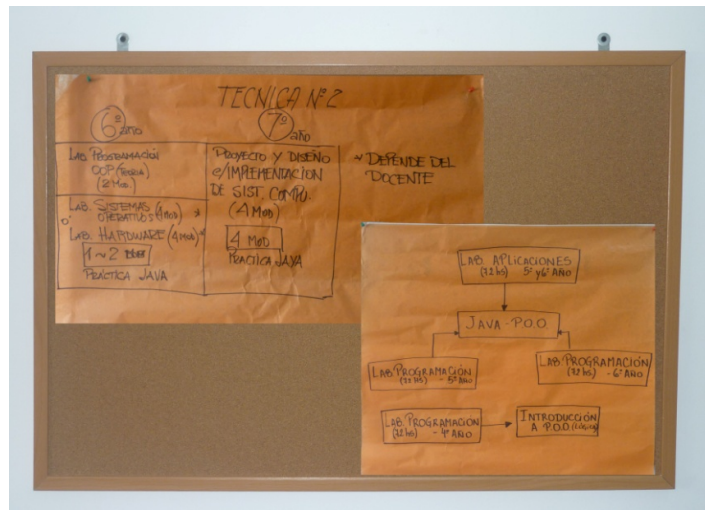 TECNICA Nº 2
6º año
7º año
LAB. PROGRAMACIÓN
OOP (TEORIA)
(2 MOD.)
LAB. SISTEMAS
OPERATIVOS (4 MOD) *
LAB. HARDWARE (4 MOD) *
1 ~ 2
PRACTICA JAVA
PROYECTO Y DISEÑO
e/IMPLEMENTACION
DE SIST. COMPU.
(4 MOD)
4 MOD
PRACTICA JAVA
* DEPENDE DEL
DOCENTE
LAB. APLICACIONES
(72 hs) 5º y 6º AÑO
JAVA - P.O.O
LAB. PROGRAMACIÓN
(72 hs) - 5º AÑO
LAB. PROGRAMACIÓN
(72 hs) - 6º AÑO
LAB. PROGRAMACIÓN
(72 hs) - 4º AÑO
INTRODUCCIÓN
A P.O.O.